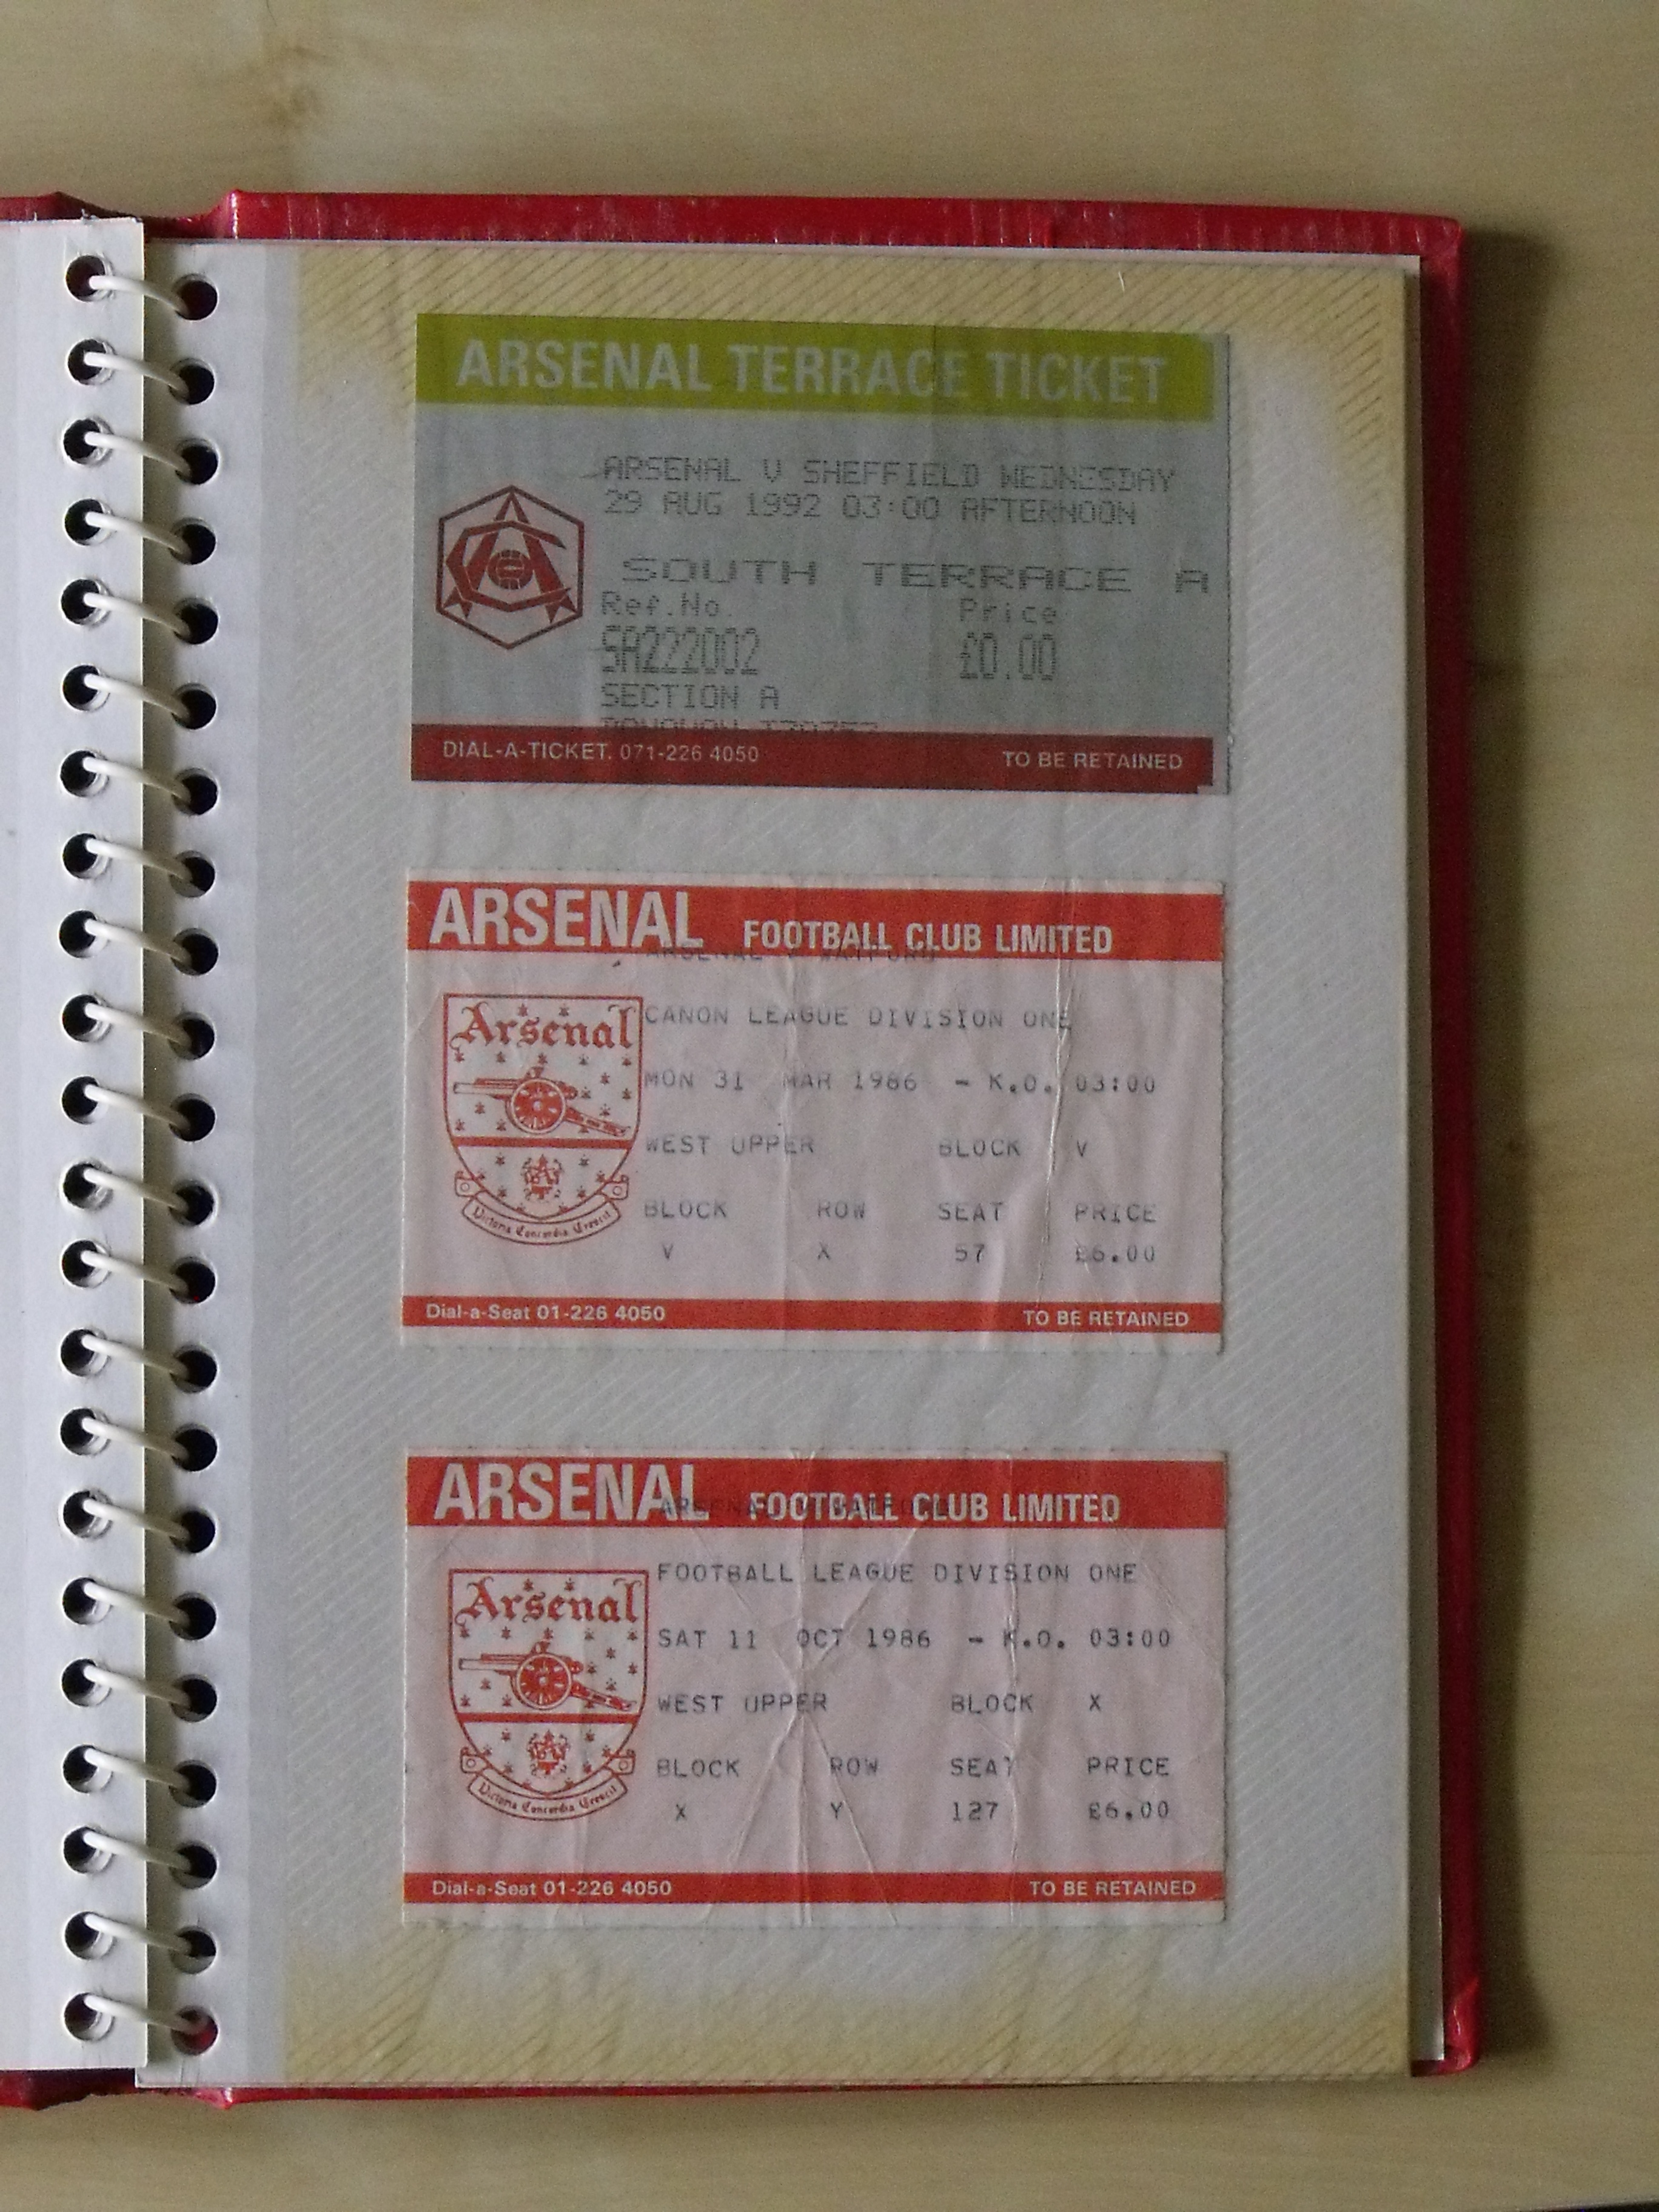 ARSENAL TERRACE TICKET
ARSENAL V SHEFFIELD WEDNESDAY
29 AUG 1992 03:00 AFTERNOON
SOUTH TERRACE A
Ref.No. Price
SA222002 £0.00
SECTION A
DIAL-A-TICKET. 071-226 4050 TO BE RETAINED
ARSENAL FOOTBALL CLUB LIMITED
ARSENAL V WATFORD
Arsenal
CANON LEAGUE DIVISION ONE
MON 31 MAR 1986 - K.O. 03:00
WEST UPPER BLOCK V
BLOCK ROW SEAT PRICE
V X 57 £6.00
Victoria Concordia Crescit
Dial-a-Seat 01-226 4050 TO BE RETAINED
ARSENAL FOOTBALL CLUB LIMITED
ARSENAL V WATFORD
Arsenal
FOOTBALL LEAGUE DIVISION ONE
SAT 11 OCT 1986 - K.O. 03:00
WEST UPPER BLOCK X
BLOCK ROW SEAT PRICE
X Y 127 £6.00
Victoria Concordia Crescit
Dial-a-Seat 01-226 4050 TO BE RETAINED